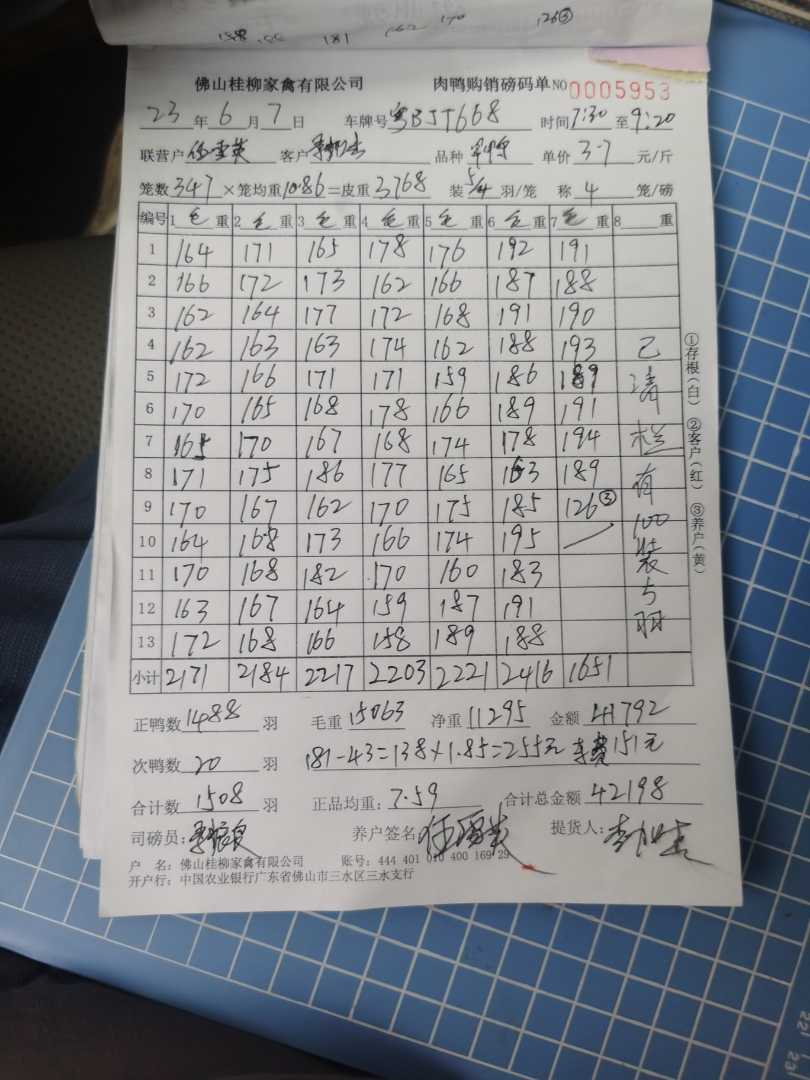 162 170 126③
181
佛山桂柳家禽有限公司 肉鸭购销磅码单 NO 0005953
23 年 6 月 7 日 车牌号 粤BJT668 时间 7:30 至 9:20
联营户 客户 品种 单价 3.7 元/斤
笼数 347 ×笼均重 10.86 =皮重 3768 装 5/4 羽/笼 称 4 笼/磅
编号 1 毛 重 2 毛 重 3 毛 重 4 毛 重 5 毛 重 6 毛 重 7 毛 重 8 重
1 164 171 165 178 176 192 191
2 166 172 173 162 166 187 188
3 162 164 177 172 168 191 190
4 162 163 163 174 162 188 193
5 172 166 171 171 159 186 189
6 170 165 168 178 166 189 191
7 165 170 167 168 174 178 194
8 171 175 186 177 165 163 189
9 170 167 162 170 175 185 126③
10 164 168 173 166 174 195
11 170 168 182 170 160 183
12 163 167 164 159 187 191
13 172 168 166 158 189 188
小计 2171 2184 2217 2203 2221 2416 1651
已清栏有100装5羽
①存根(白) ②客户(红) ③养户(黄)
正鸭数 1488 羽 毛重 15063 净重 11295 金额 41792
次鸭数 20 羽 181-43=138×1.85=255元 车费151元
合计数 1508 羽 正品均重: 7.59 合计总金额 42198
司磅员: 养户签名: 提货人:
户 名: 佛山桂柳家禽有限公司 账号: 444 401 010 400 169 29
开户行: 中国农业银行广东省佛山市三水区三水支行